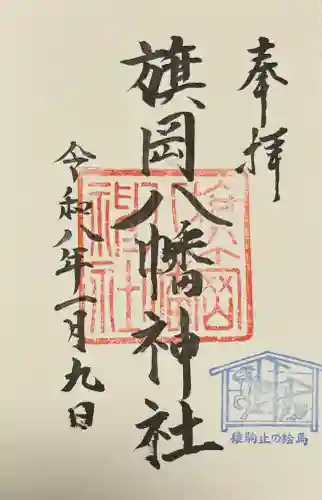 奉拝
旗岡八幡神社
令和八年一月九日
旗岡神社
種駒止の絵馬